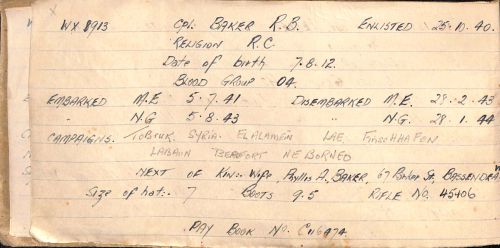 WX 8913 CPL. BAKER R.B. ENLISTED 25.10.40.
RELIGION R.C.
Date of birth 7.8.12.
BLOOD GROUP O4.
EMBARKED M.E 5.7.41 DISEMBARKED M.E. 28.2.43
" N.G 5.8.43 " N.G. 28.1.44
CAMPAIGNS. TOBRUK. SYRIA. EL ALAMEIN LAE. FINSCHHAFEN
LABAUN BEAUFORT NE BORNEO
NEXT OF Kin:- Wife, Phyllis A. BAKER, 67 St. BASSENDEAN
Size of hat:- 7 BOOTS 9.5 RIFLE No. 45406
PAY BOOK No.